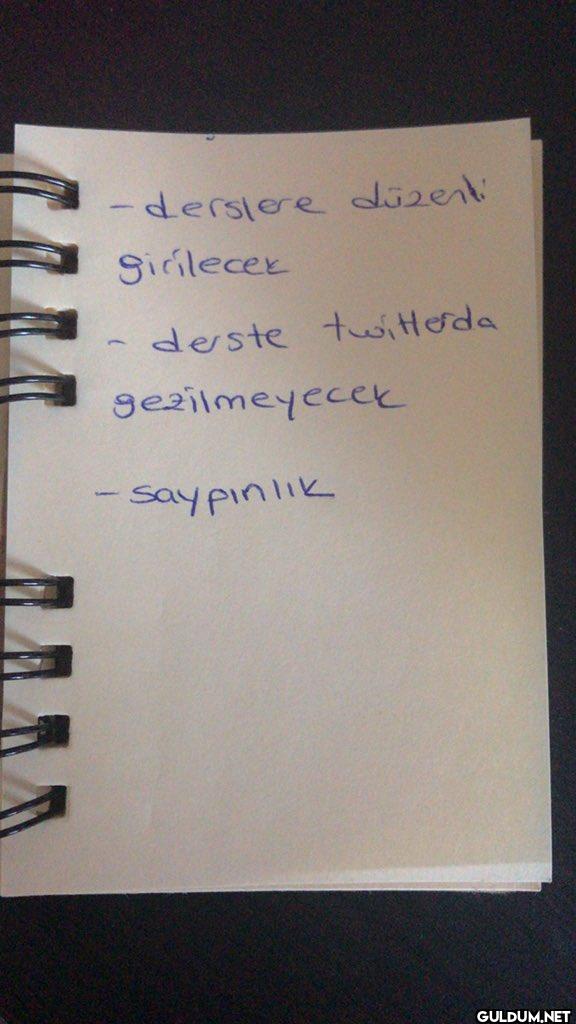 - derslere düzenli
girilecek
- derste twitterda
gezilmeyecek
- saypınlık
GULDUM.NET